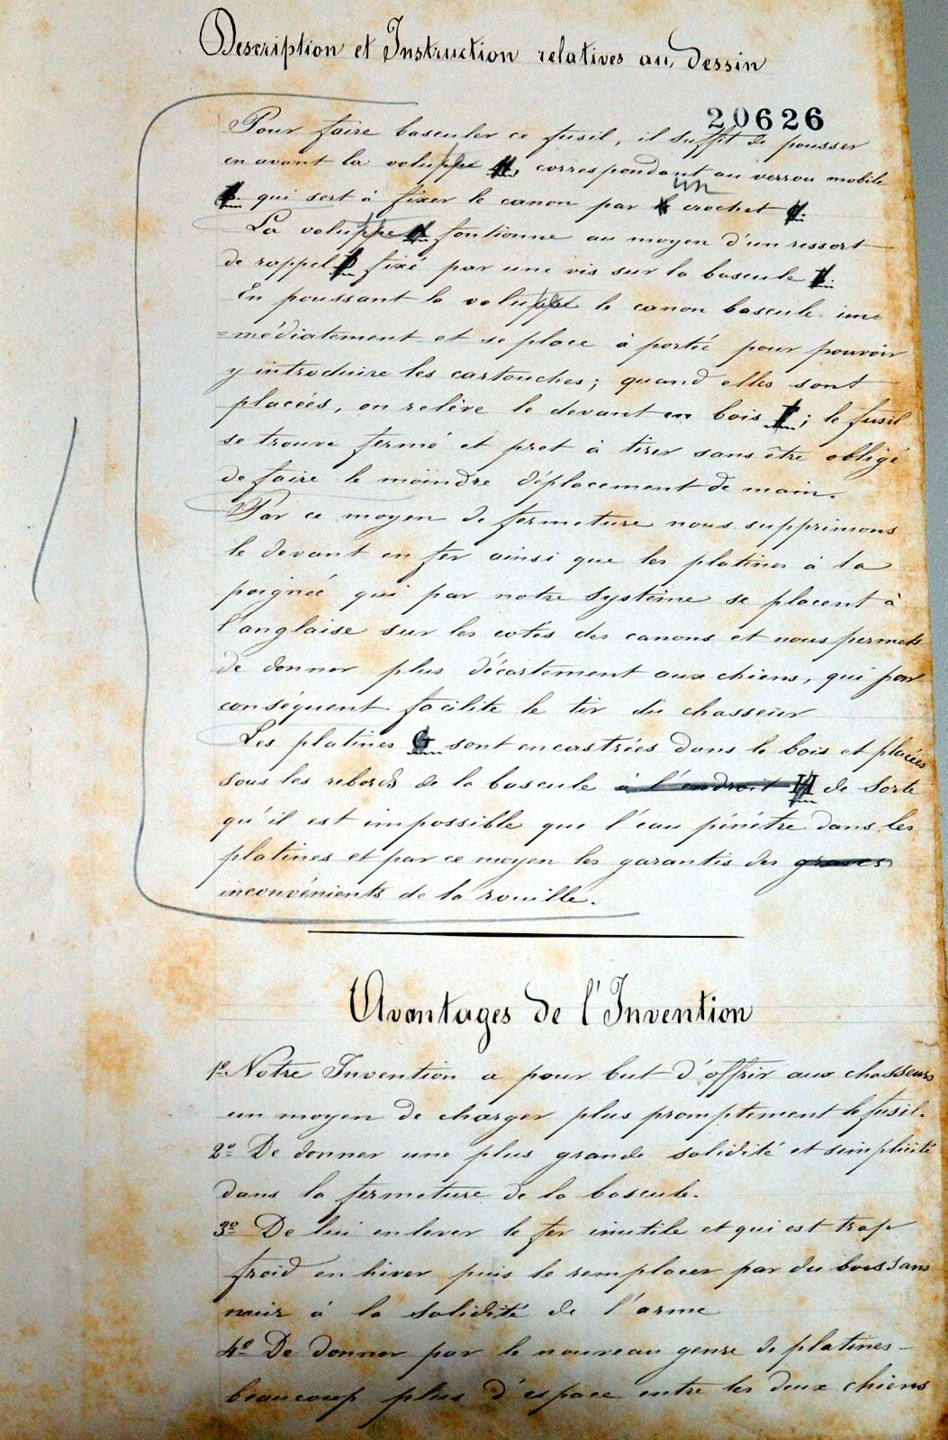 Description et Instruction relatives au Dessin
20626
Pour faire basculer ce fusil, il suffit de pousser
en avant la voluppe correspondant au verrou mobile
qui sert à fixer le canon par un crochet
La voluppe fontionne au moyen d'un ressort
de rappel fixé par une vis sur la bascule
En poussant la voluppe le canon bascule im=
=médiatement et se place à portée pour pouvoir
y introduire les cartouches; quand elles sont
placées, on relève le devant en bois ; le fusil
se trouve fermé et pret à tirer sans être obligé
de faire le moindre déplacement de main.
Par ce moyen de fermeture nous supprimons
le devant en fer ainsi que les platines à la
poignée qui par notre système se placent à
l'anglaise sur les cotés des canons et nous permets
de donner plus décartement aux chiens, qui par
conséquent facilite le tir du chasseur
Les platines G sont encastrées dans le bois et placées
sous les rebords de la bascule à l'endroit H de sorte
qu'il est impossible que l'eau pénétre dans les
platines et par ce moyen les garantis des graves
inconvénients de la rouille.
Avantages de l'Invention
1º Notre Invention a pour but d'offrir aux chasseurs
un moyen de charger plus promptement le fusil.
2º De donner une plus grande solidité et simplicité
dans la fermeture de la bascule.
3º De lui enlever le fer inutile et qui est trop
froid en hiver puis le remplacer par du bois sans
nuir à la solidité de l'arme
4º De donner par le nouveau genre de platines
beaucoup plus d'espace entre les deux chiens